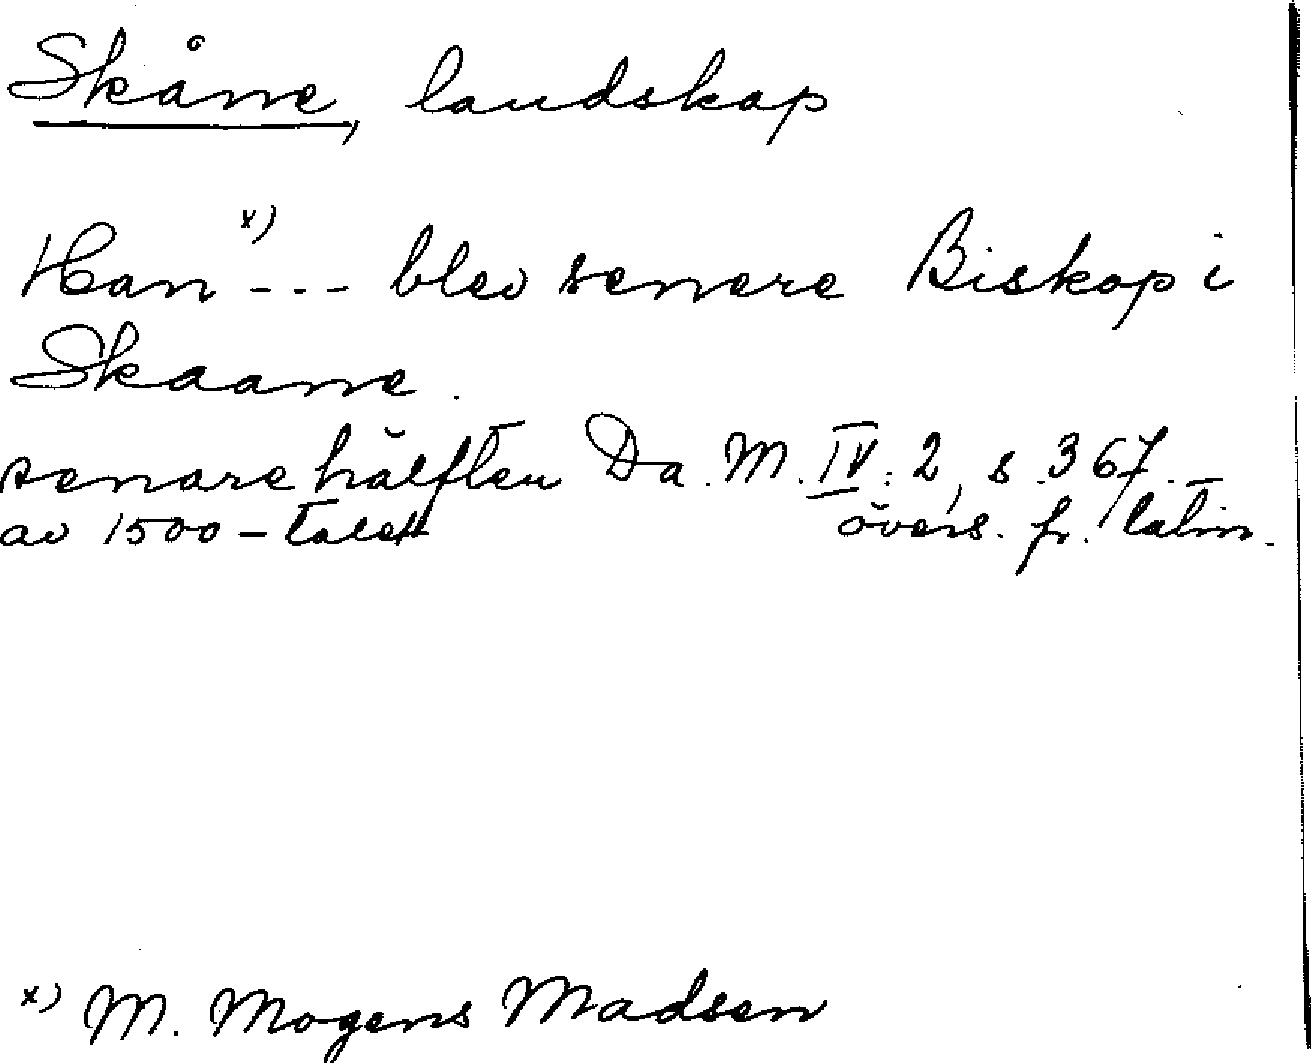 Skåne, landskap
Han x) - - - blev senere Biskop i
Skaane.
senare hälften Da. M. IV: 2, s. 367.
av 1500-talet övers. fr. latin.
x) M. Mogens Madsen